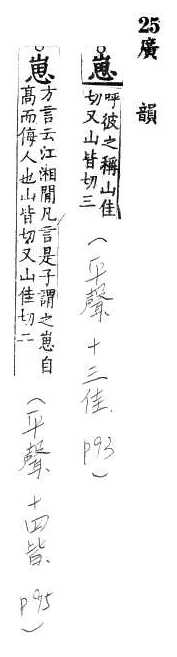 25廣韻
崽
呼彼之稱山佳
切又山皆切三
(平聲十三佳 p93)
崽
方言云江湘閒凡言是子謂之崽自
高而侮人也山皆切又山佳切二
(平聲十四皆 p95)